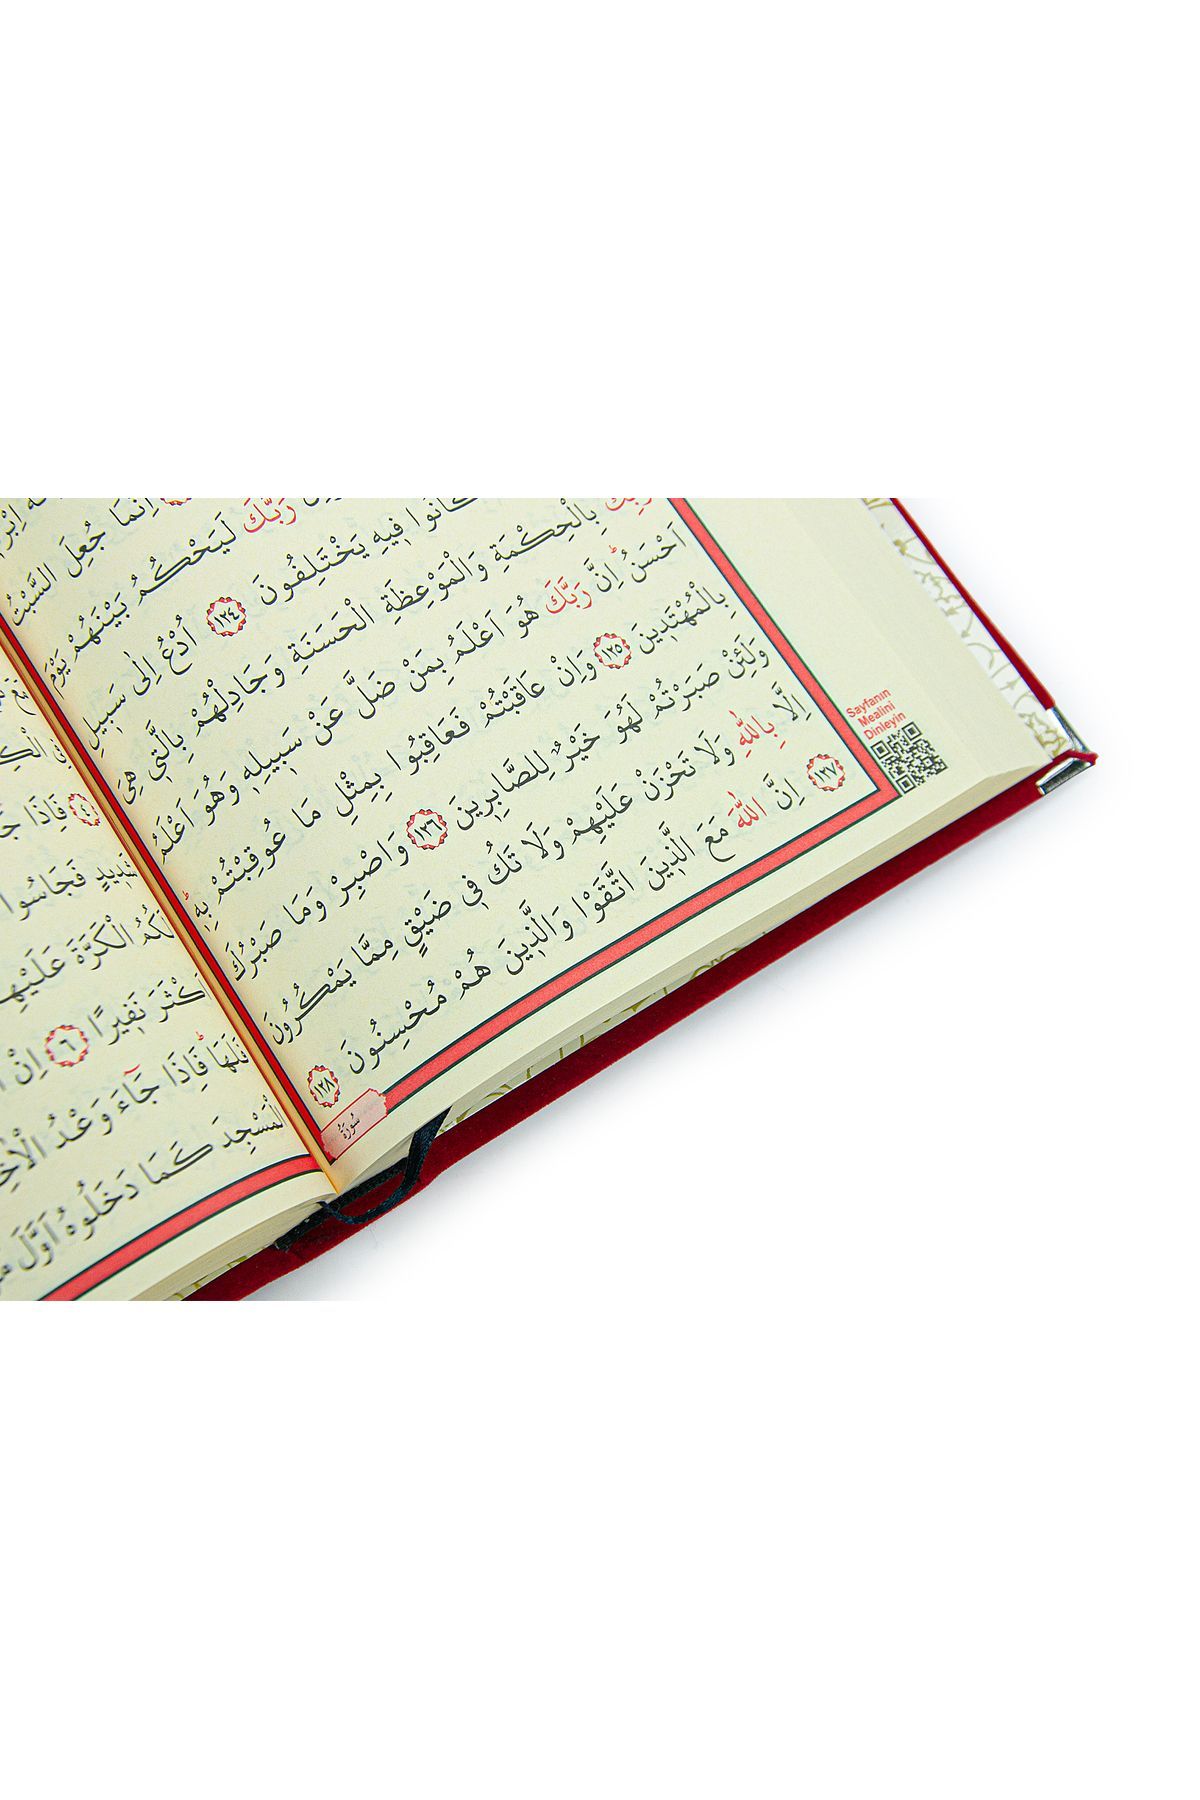 اِنَّمَا جُعِلَ السَّبْتُ
رَبَّكَ لَيَحْكُمُ بَيْنَهُمْ يَوْمَ
كَانُوا فِيهِ يَخْتَلِفُونَ ﴿١٢٤﴾ اُدْعُ اِلٰى سَبِيلِ
رَبِّكَ بِالْحِكْمَةِ وَالْمَوْعِظَةِ الْحَسَنَةِ وَجَادِلْهُمْ بِالَّتِي هِيَ
اَحْسَنُ اِنَّ رَبَّكَ هُوَ اَعْلَمُ بِمَنْ ضَلَّ عَنْ سَبِيلِهِ وَهُوَ اَعْلَمُ
بِالْمُهْتَدِينَ ﴿١٢٥﴾ وَاِنْ عَاقَبْتُمْ فَعَاقِبُوا بِمِثْلِ مَا عُوقِبْتُمْ بِهِ
وَلَئِنْ صَبَرْتُمْ لَهُوَ خَيْرٌ لِلصَّابِرِينَ ﴿١٢٦﴾ وَاصْبِرْ وَمَا صَبْرُكَ
اِلَّا بِاللّٰهِ وَلَا تَحْزَنْ عَلَيْهِمْ وَلَا تَكُ فِي ضَيْقٍ مِمَّا يَمْكُرُونَ
﴿١٢٧﴾ اِنَّ اللّٰهَ مَعَ الَّذِينَ اتَّقَوْا وَالَّذِينَ هُمْ مُحْسِنُونَ ﴿١٢٨﴾
سُورَةُ
Sayfanın
Mealini
Dinleyin
﴿٤﴾ فَاِذَا
فَجَاسُوا
الْكَرَّةَ عَلَيْهِمْ
اَكْثَرَ نَفِيرًا ﴿٦﴾ اِنْ
فَاِذَا جَاءَ وَعْدُ
الْمَسْجِدَ كَمَا دَخَلُوهُ اَوَّلَ